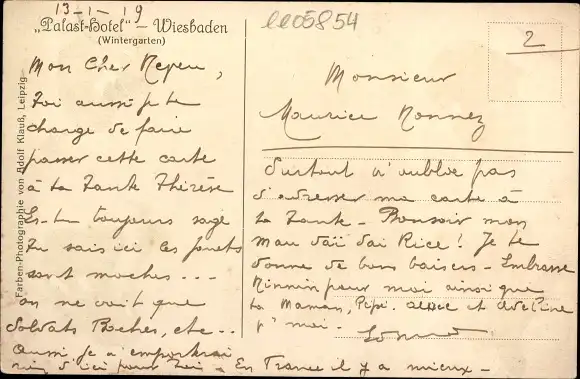 13-1-19
"Palast-Hotel" – Wiesbaden
(Wintergarten)
Mon Cher Neveu,
Toi aussi je te
charge de faire
passer cette carte
à ta Tante Thérèse
Es-tu toujours sage
Tu sais ici les jouets
sont moches...
on ne voit que
Soldats Boches, etc..
Aussi je n'emporterai
rien d'ici pour Toi - En France il y a mieux -
Farben-Photographie von Adolf Klauß, Leipzig
0005854
2
Monsieur
Maurice Monnez
Surtout n'oublie pas
d'adresser ma carte à
ta Tante - Bonsoir mon
Je te
donne de bons baisers - Embrasse
pour moi ainsi que
ta Maman, Pépé, et